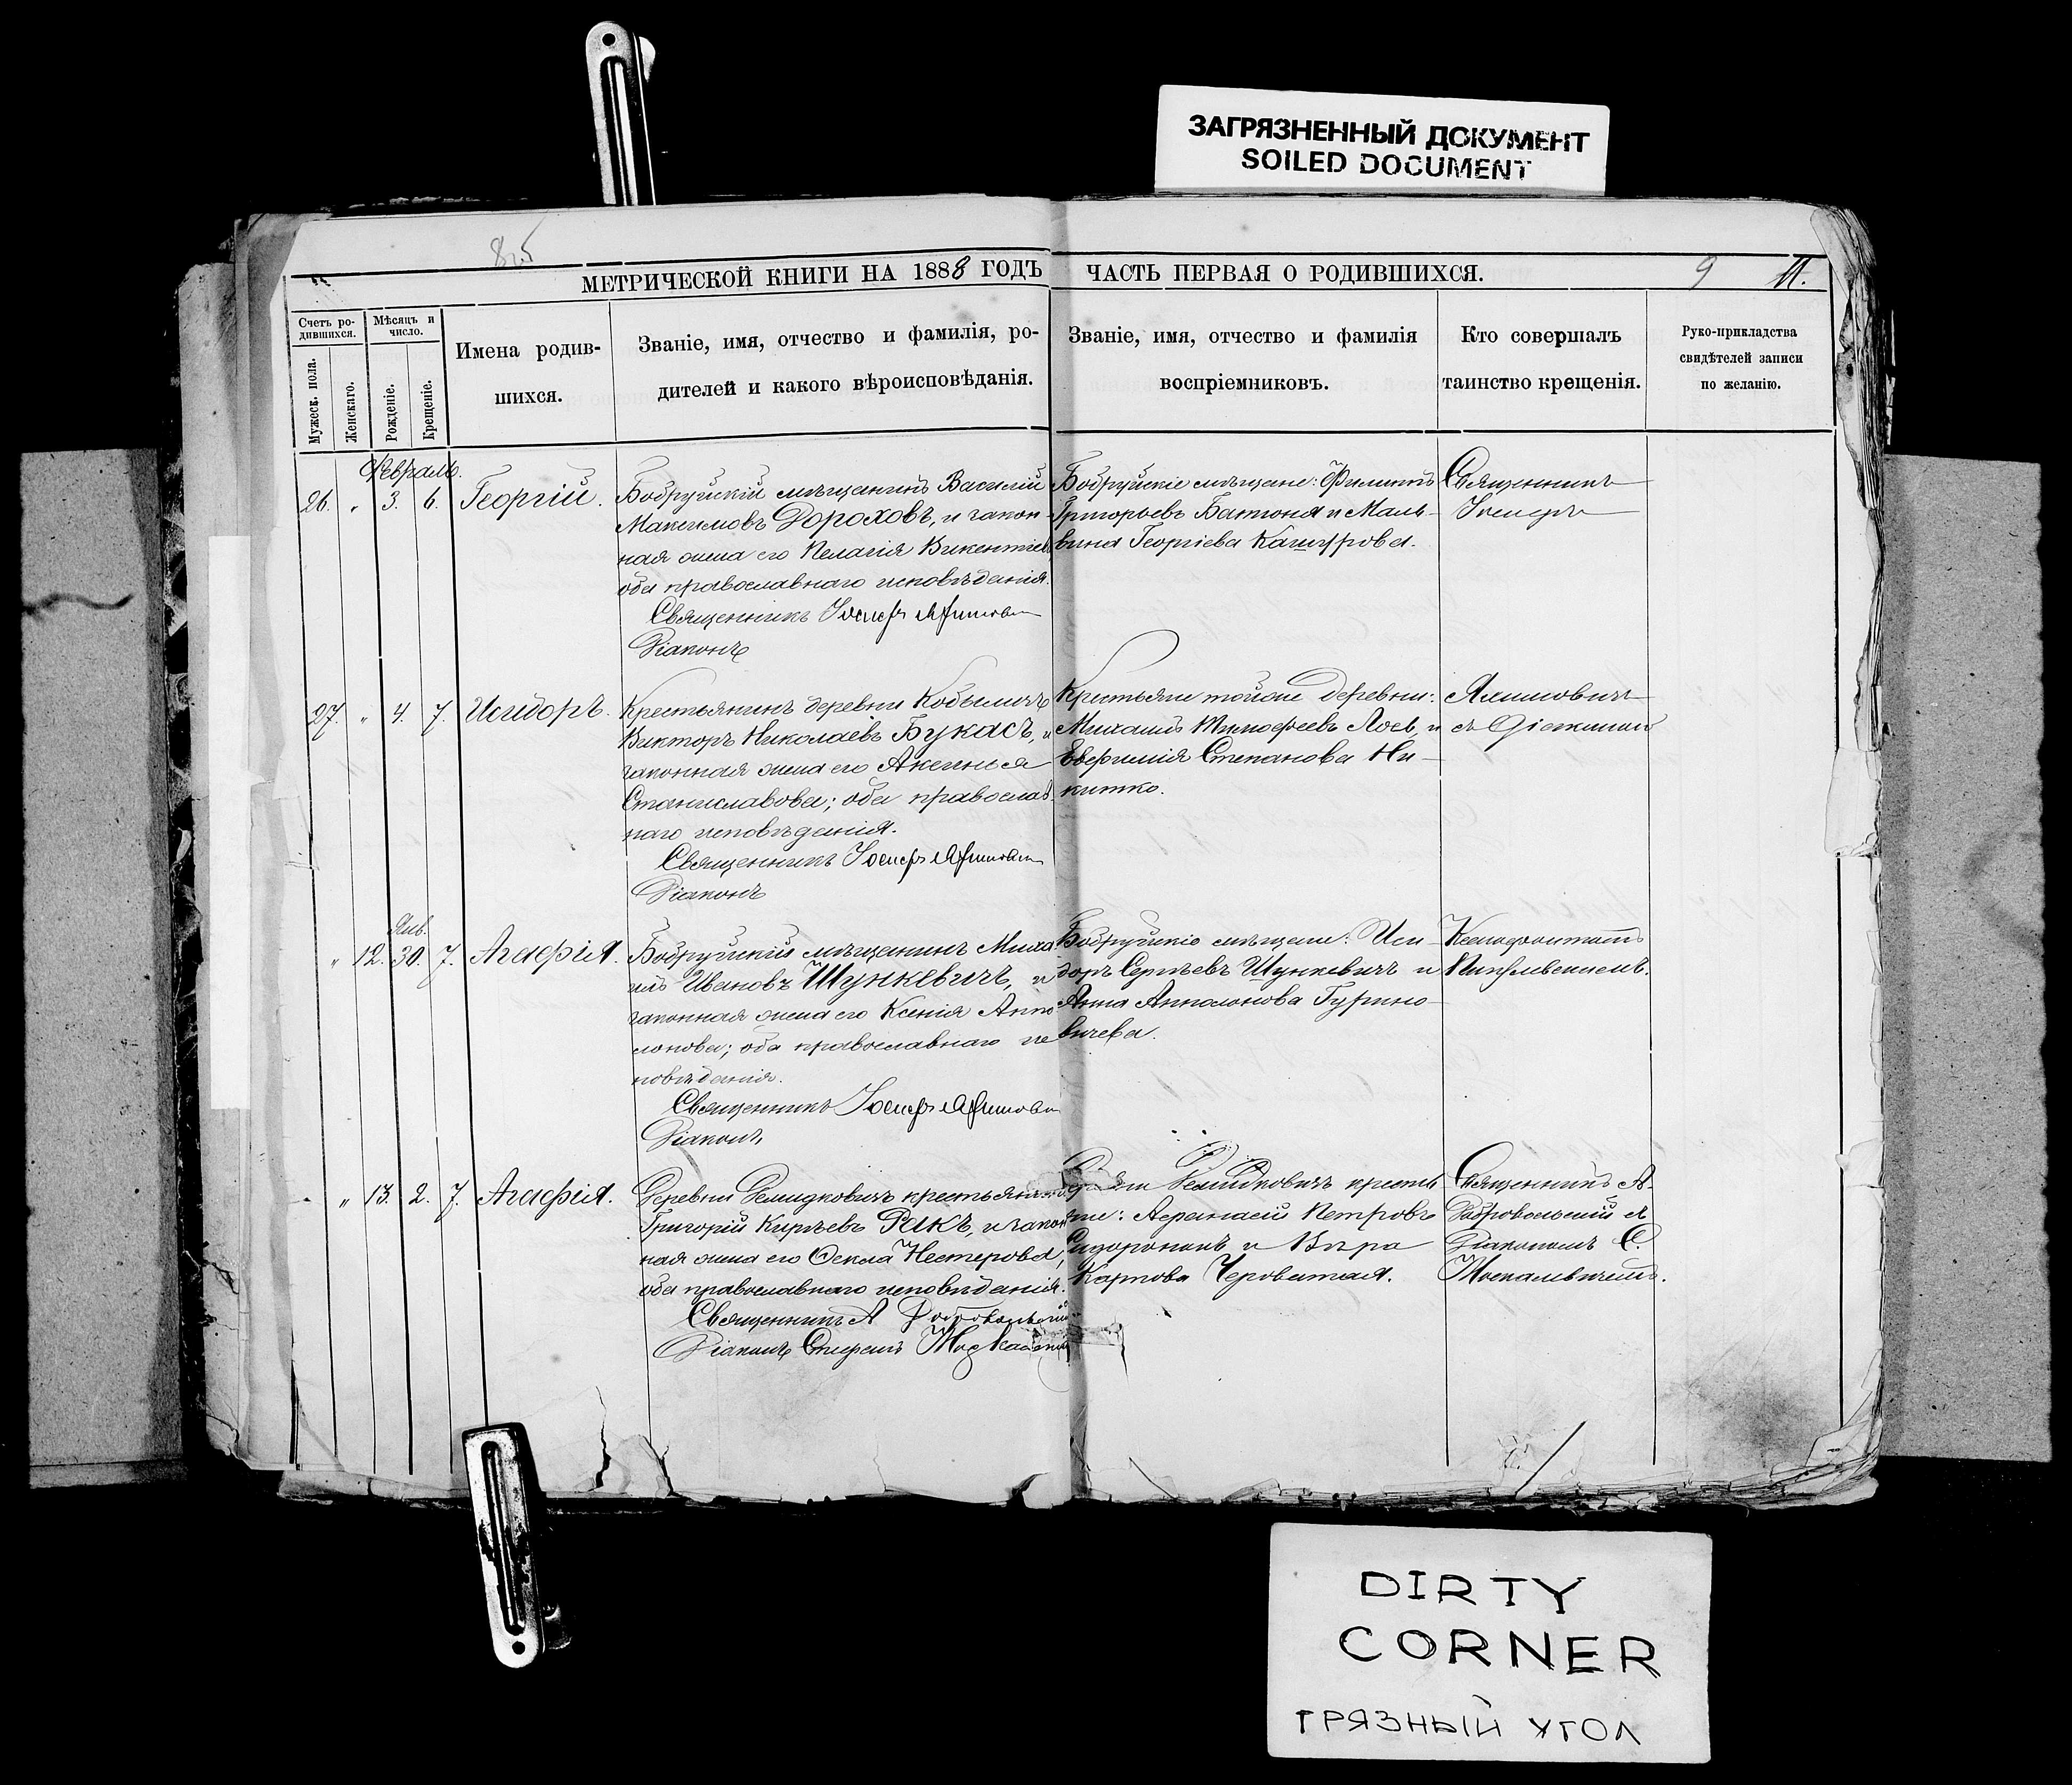 ЗАГРЯЗНЕННЫЙ ДОКУМЕНТ
SOILED DOCUMENT
85
МЕТРИЧЕСКОЙ КНИГИ НА 1888 ГОДЪ
ЧАСТЬ ПЕРВАЯ О РОДИВШИХСЯ.
9
11.
Счетъ ро-
дившихся.
Мужеск. пола.
Женскаго.
Мѣсяцъ и
число.
Рожденіе.
Крещеніе.
Имена родив-
шихся.
Званіе, имя, отчество и фамилія, ро-
дителей и какого вѣроисповѣданія.
Званіе, имя, отчество и фамилія
воспріемниковъ.
Кто совершалъ
таинство крещенія.
Руко-прикладства
свидѣтелей записи
по желанію.
Февраль.
26. " 3. 6. Георгій.
Бобруйскій мѣщанинъ Василій
Максимовъ Дороховъ, и закон-
ная жена его Пелагія Викентіева
оба православнаго исповѣданія.
Священникъ Іосифъ
Діаконъ
Бобруйскіе мѣщане: Филиппъ
Григорьевъ Батюня и Маль-
вина Георгіева
Священникъ
Іосифъ
27. " 4. 7. Исидоръ.
Крестьянинъ деревни
Викторъ Николаевъ Букасъ, и
законная жена его Аксинья
Станиславова; оба православ-
наго исповѣданія.
Священникъ Іосифъ
Діаконъ
Крестьяне тойже деревни:
Михаилъ Тимофеевъ Лось, и
Евфимія Степанова Ни-
китко.
Янв.
" 12. 30. 7. Агафія.
Бобруйскій мѣщанинъ Миха-
илъ Ивановъ Шункевичъ, и
законная жена его Ксенія Аппо-
лонова; оба православнаго ис-
повѣданія.
Священникъ Іосифъ
Діаконъ
Бобруйскіе мѣщане: Иси-
доръ Сергѣевъ Шункевичъ и
Анна Апполонова Гурино-
вичева.
" 13. 2. 7. Агафія.
Деревни Демидковичъ крестьянинъ
Григорій Кирѣевъ Ракъ, и закон-
ная жена его Ѳекла Нестерова,
оба православнаго исповѣданія.
Священникъ А Добровольскій
Діаконъ
Демидковичъ крестья-
не: Афанасій Петровъ
и Вѣра
Карпова Черовитая.
Священникъ А.
Добровольскій съ
Діакономъ С.
DIRTY
CORNER
ГРЯЗНЫЙ УГОЛ